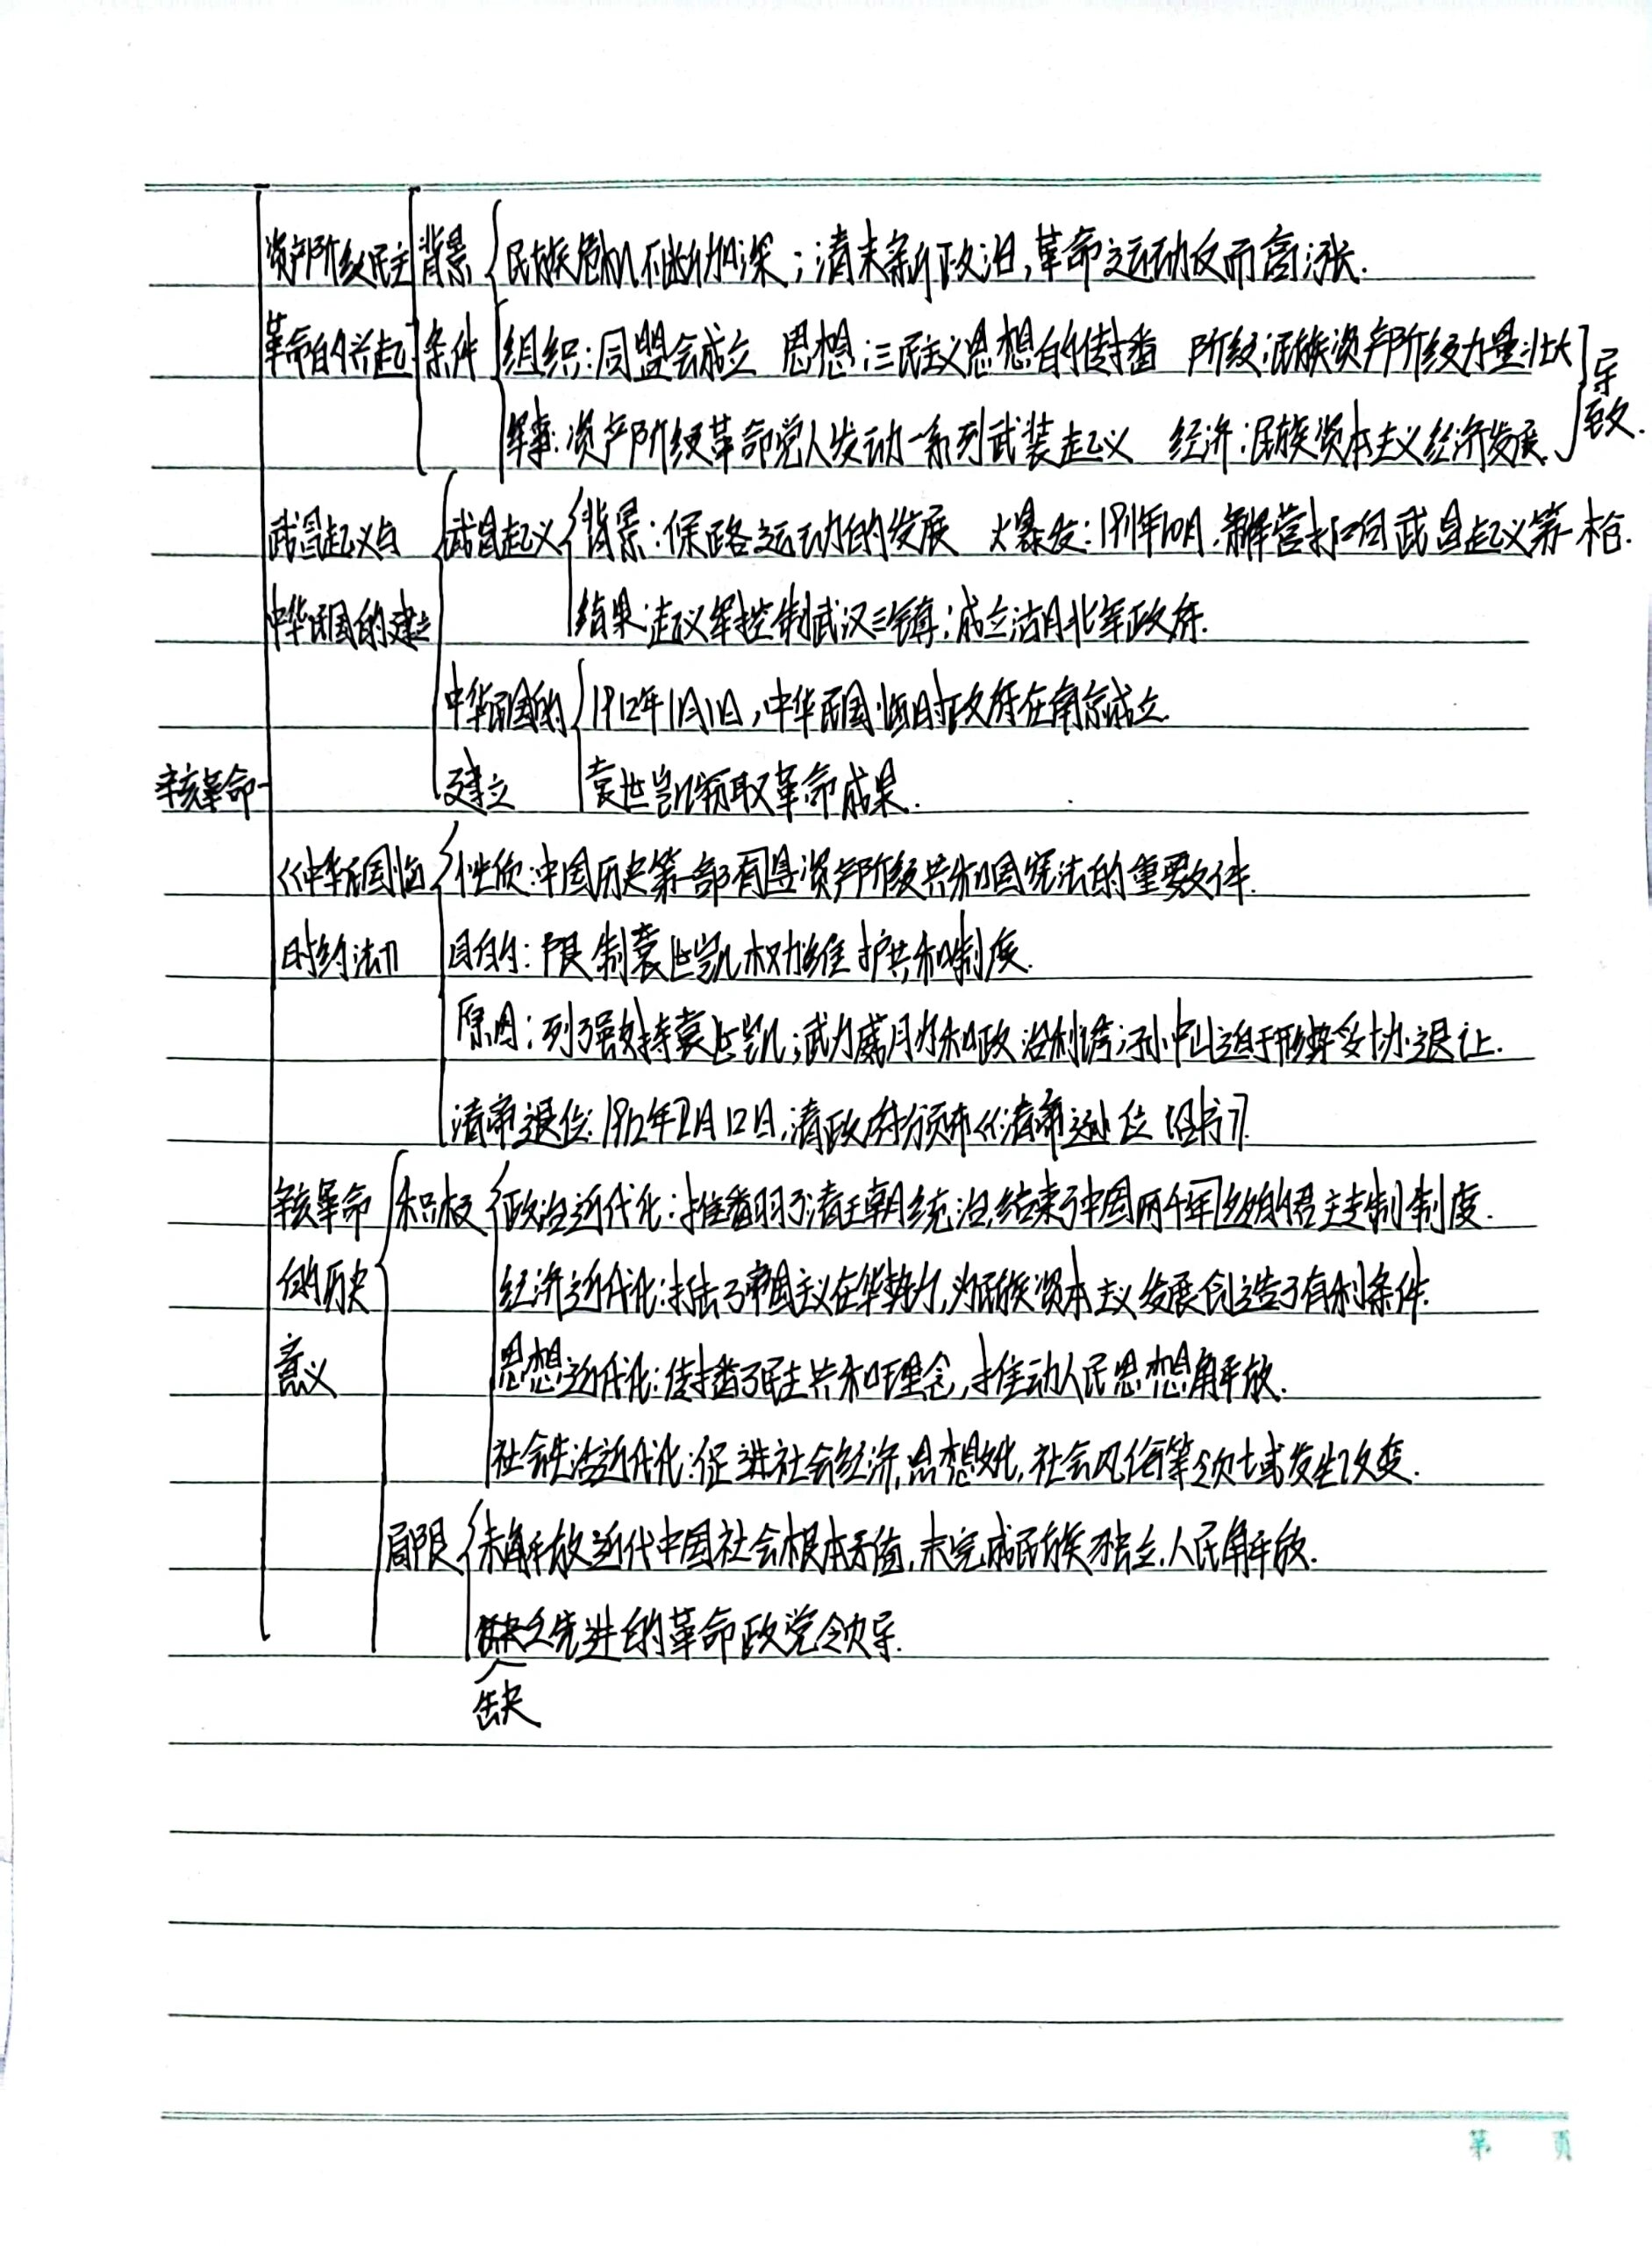 资产阶级民主 背景 民族危机不断加深；清末新政治，革命运动反而高涨.
革命的兴起 条件 组织：同盟会成立 思想：三民主义思想的传播 阶级：民族资产阶级力量壮大 导致.
军事：资产阶级革命党人发动一系列武装起义 经济：民族资本主义经济发展
武昌起义与 武昌起义 背景：保路运动的发展 火爆发：1911年10月，新军工程营打响武昌起义第一枪.
中华民国的建立 结果：起义军控制武汉三镇；成立湖北军政府.
中华民国的 1912年1月1日，中华民国临时政府在南京成立.
辛亥革命 建立 袁世凯窃取革命成果.
《中华民国临 性质：中国历史第一部有资产阶级共和国宪法的重要文件.
时约法》 目的：限制袁世凯权力维护共和制度.
原因：列强支持袁世凯；武力威胁和政治利诱；孙中山迫于形势妥协退让.
清帝退位：1912年2月12日，清政府颁布《清帝逊位诏书》
辛亥革命 积极 政治近代化：推翻了清王朝统治，结束了中国两千年的君主专制制度.
的历史 经济近代化：打击了帝国主义在华势力，为民族资本主义发展创造了有利条件.
意义 思想近代化：传播了民主共和理念，推动人民思想解放.
社会生活近代化：促进社会经济，思想文化，社会风俗等领域发生改变.
局限 未解放近代中国社会根本矛盾，未完成民族独立，人民解放.
乏先进的革命政党领导.
缺
第 页